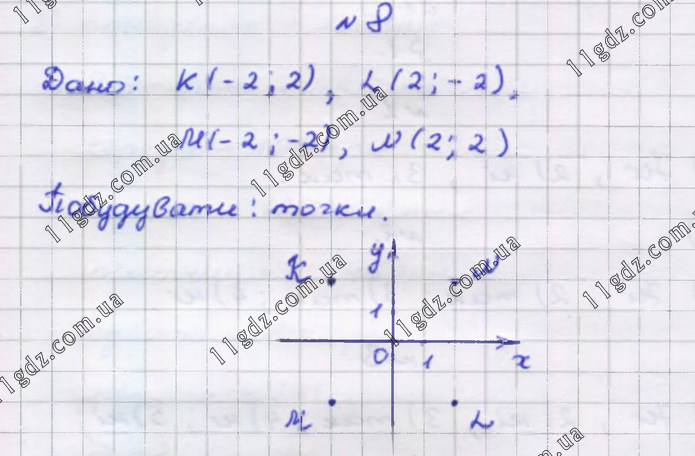 № 8
Дано: K(-2; 2), L(2; -2),
M(-2; -2), N(2; 2)
Побудувати: точки.
K y N
1
0 1 x
M L
11gdz.com.ua
11gdz.com.ua
11gdz.com.ua
11gdz.com.ua
11gdz.com.ua
11gdz.com.ua
11gdz.com.ua
11gdz.com.ua